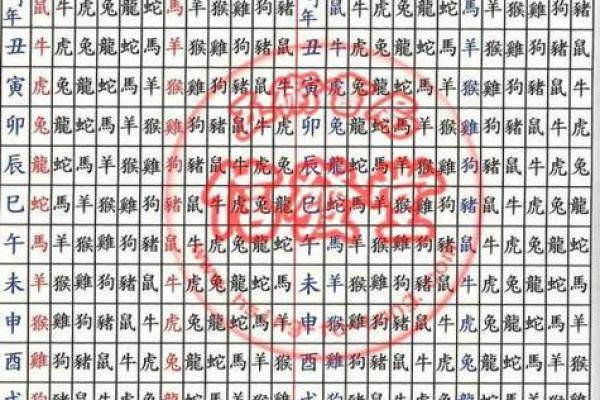 年鼠牛虎兔龍蛇馬羊猴雞狗豬年鼠牛虎兔龍蛇馬羊猴雞狗豬
丑牛虎兔龍蛇馬羊猴雞狗豬鼠丑牛虎兔龍蛇馬羊猴雞狗豬鼠
寅虎兔龍蛇馬羊猴雞狗豬鼠牛寅虎兔龍蛇馬羊猴雞狗豬鼠牛
卯兔龍蛇馬羊猴雞狗豬鼠牛虎卯兔龍蛇馬羊猴雞狗豬鼠牛虎
辰龍蛇馬羊猴雞狗豬鼠牛虎兔辰龍蛇馬羊猴雞狗豬鼠牛虎兔
巳蛇馬羊猴雞狗豬鼠牛虎兔龍巳蛇馬羊猴雞狗豬鼠牛虎兔龍
午馬羊猴雞狗豬鼠牛虎兔龍蛇午馬羊猴雞狗豬鼠牛虎兔龍蛇
未羊猴雞狗豬鼠牛虎兔龍蛇馬未羊猴雞狗豬鼠牛虎兔龍蛇馬
申猴雞狗豬鼠牛虎兔龍蛇馬羊申猴雞狗豬鼠牛虎兔龍蛇馬羊
酉雞狗豬鼠牛虎兔龍蛇馬羊猴酉雞狗豬鼠牛虎兔龍蛇馬羊猴
戌狗豬鼠牛虎兔龍蛇馬羊猴雞戌狗豬鼠牛虎兔龍蛇馬羊猴雞